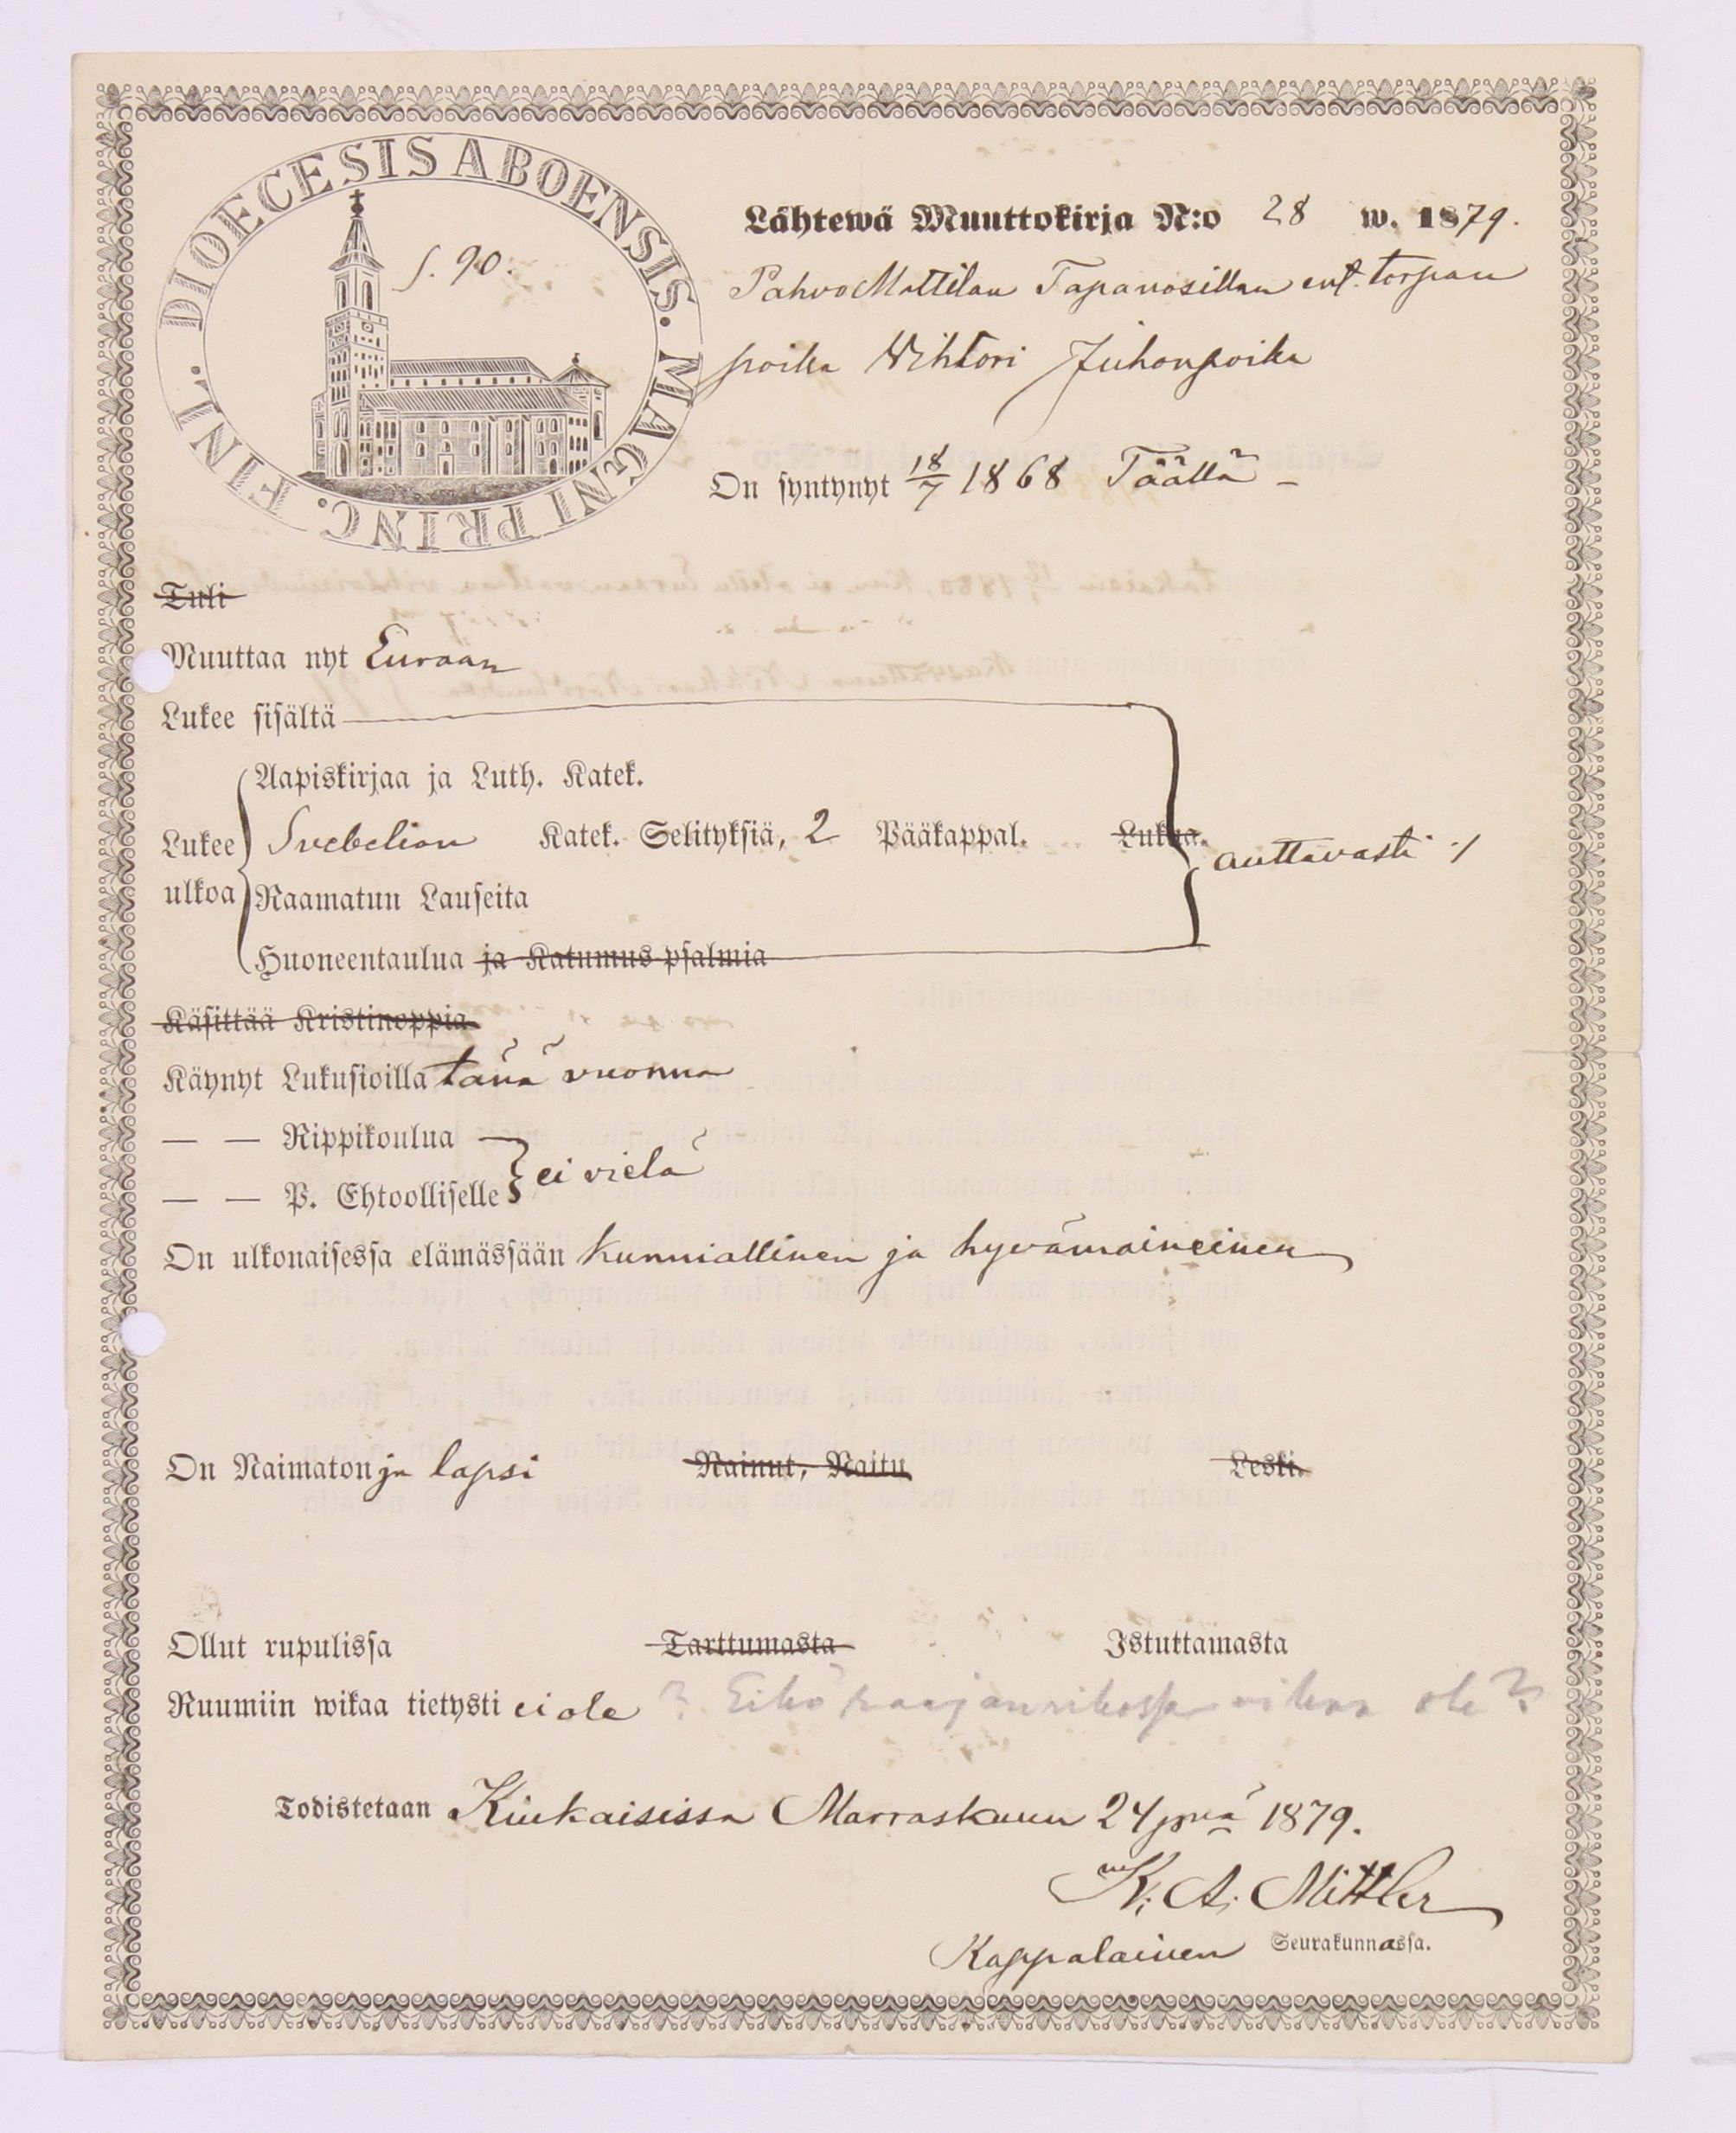 DIOECESIS ABOENSIS. MAGNI PRINC. FINL.
s. 90.
Lähtewä Muuttokirja N:o 28 w. 1879.
Pahvo Mattilan Tapanosillan ent. torpan
poika Wihtori Juhonpoika
On syntynyt 18/7 1868 Täällä –
Tuli
Muuttaa nyt Euraan
Lukee sisältä
Aapiskirjaa ja Luth. Katek.
Lukee Svebelion Katek. Selityksiä, 2 Pääkappal. Lukua. auttavasti ./
ulkoa Raamatun Lauseita
Huoneentaulua ja Katumus psalmia
Käsittää Kristinoppia
Käynyt Lukusioilla tänä vuonna
— — Rippikoulua
ei vielä
— — P. Ehtoolliselle
On ulkonaisessa elämässään kunniallinen ja hyvämaineinen
On Naimaton ja lapsi Nainut, Naitu Leski.
Ollut rupulissa Tarttumasta Istuttamasta
Ruumiin wikaa tietysti ei ole ? Eikö vikaa ole ?
Todistetaan Kiukaisissa Marraskuun 24 pnä 1879.
K. A. Mittler
Kappalainen Seurakunnassa.